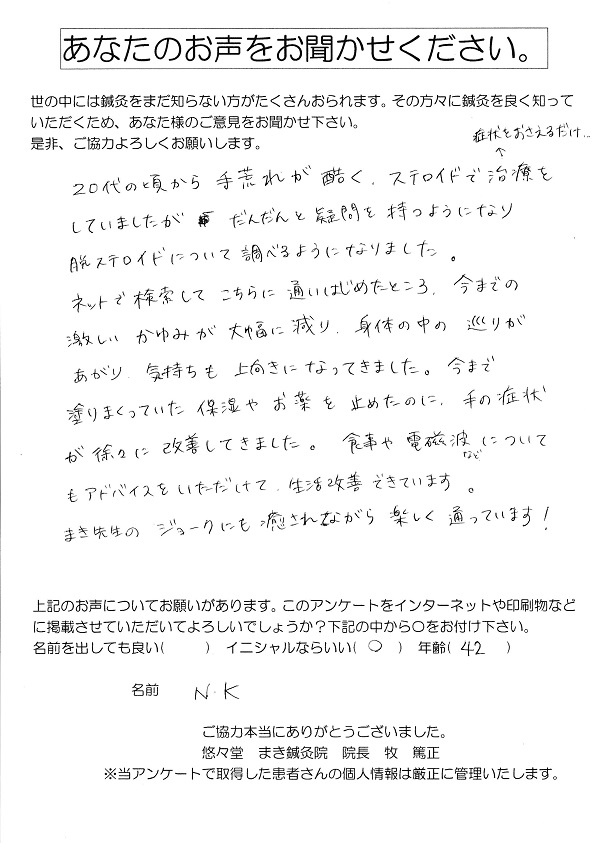 あなたのお声をお聞かせください。
世の中には鍼灸をまだ知らない方がたくさんおられます。その方々に鍼灸を良く知って
いただくため、あなた様のご意見をお聞かせ下さい。
是非、ご協力よろしくお願いします。
症状をおさえるだけ…
↑
20代の頃から 手荒れが 酷く、ステロイドで治療を
していましたが だんだんと疑問を 持つようになり
脱ステロイドについて 調べるようになりました。
ネットで 検索して こちらに 通いはじめたところ、今までの
激しい かゆみが 大幅に減り、身体の中の 巡りが
あがり、気持ちも 上向きになってきました。今まで
塗りまくっていた 保湿や お薬を 止めたのに、手の症状
が 徐々に 改善してきました。 食事や 電磁波などについて
もアドバイスをいただけて、生活改善できています。
まき先生の ジョークにも癒されながら 楽しく 通っています!
上記のお声についてお願いがあります。このアンケートをインターネットや印刷物など
に掲載させていただいてよろしいでしょうか?下記の中から○をお付け下さい。
名前を出しても良い( ) イニシャルならいい( ○ ) 年齢( 42 )
名前 N.K
ご協力本当にありがとうございました。
悠々堂 まき鍼灸院 院長 牧 篤正
※当アンケートで取得した患者さんの個人情報は厳正に管理いたします。